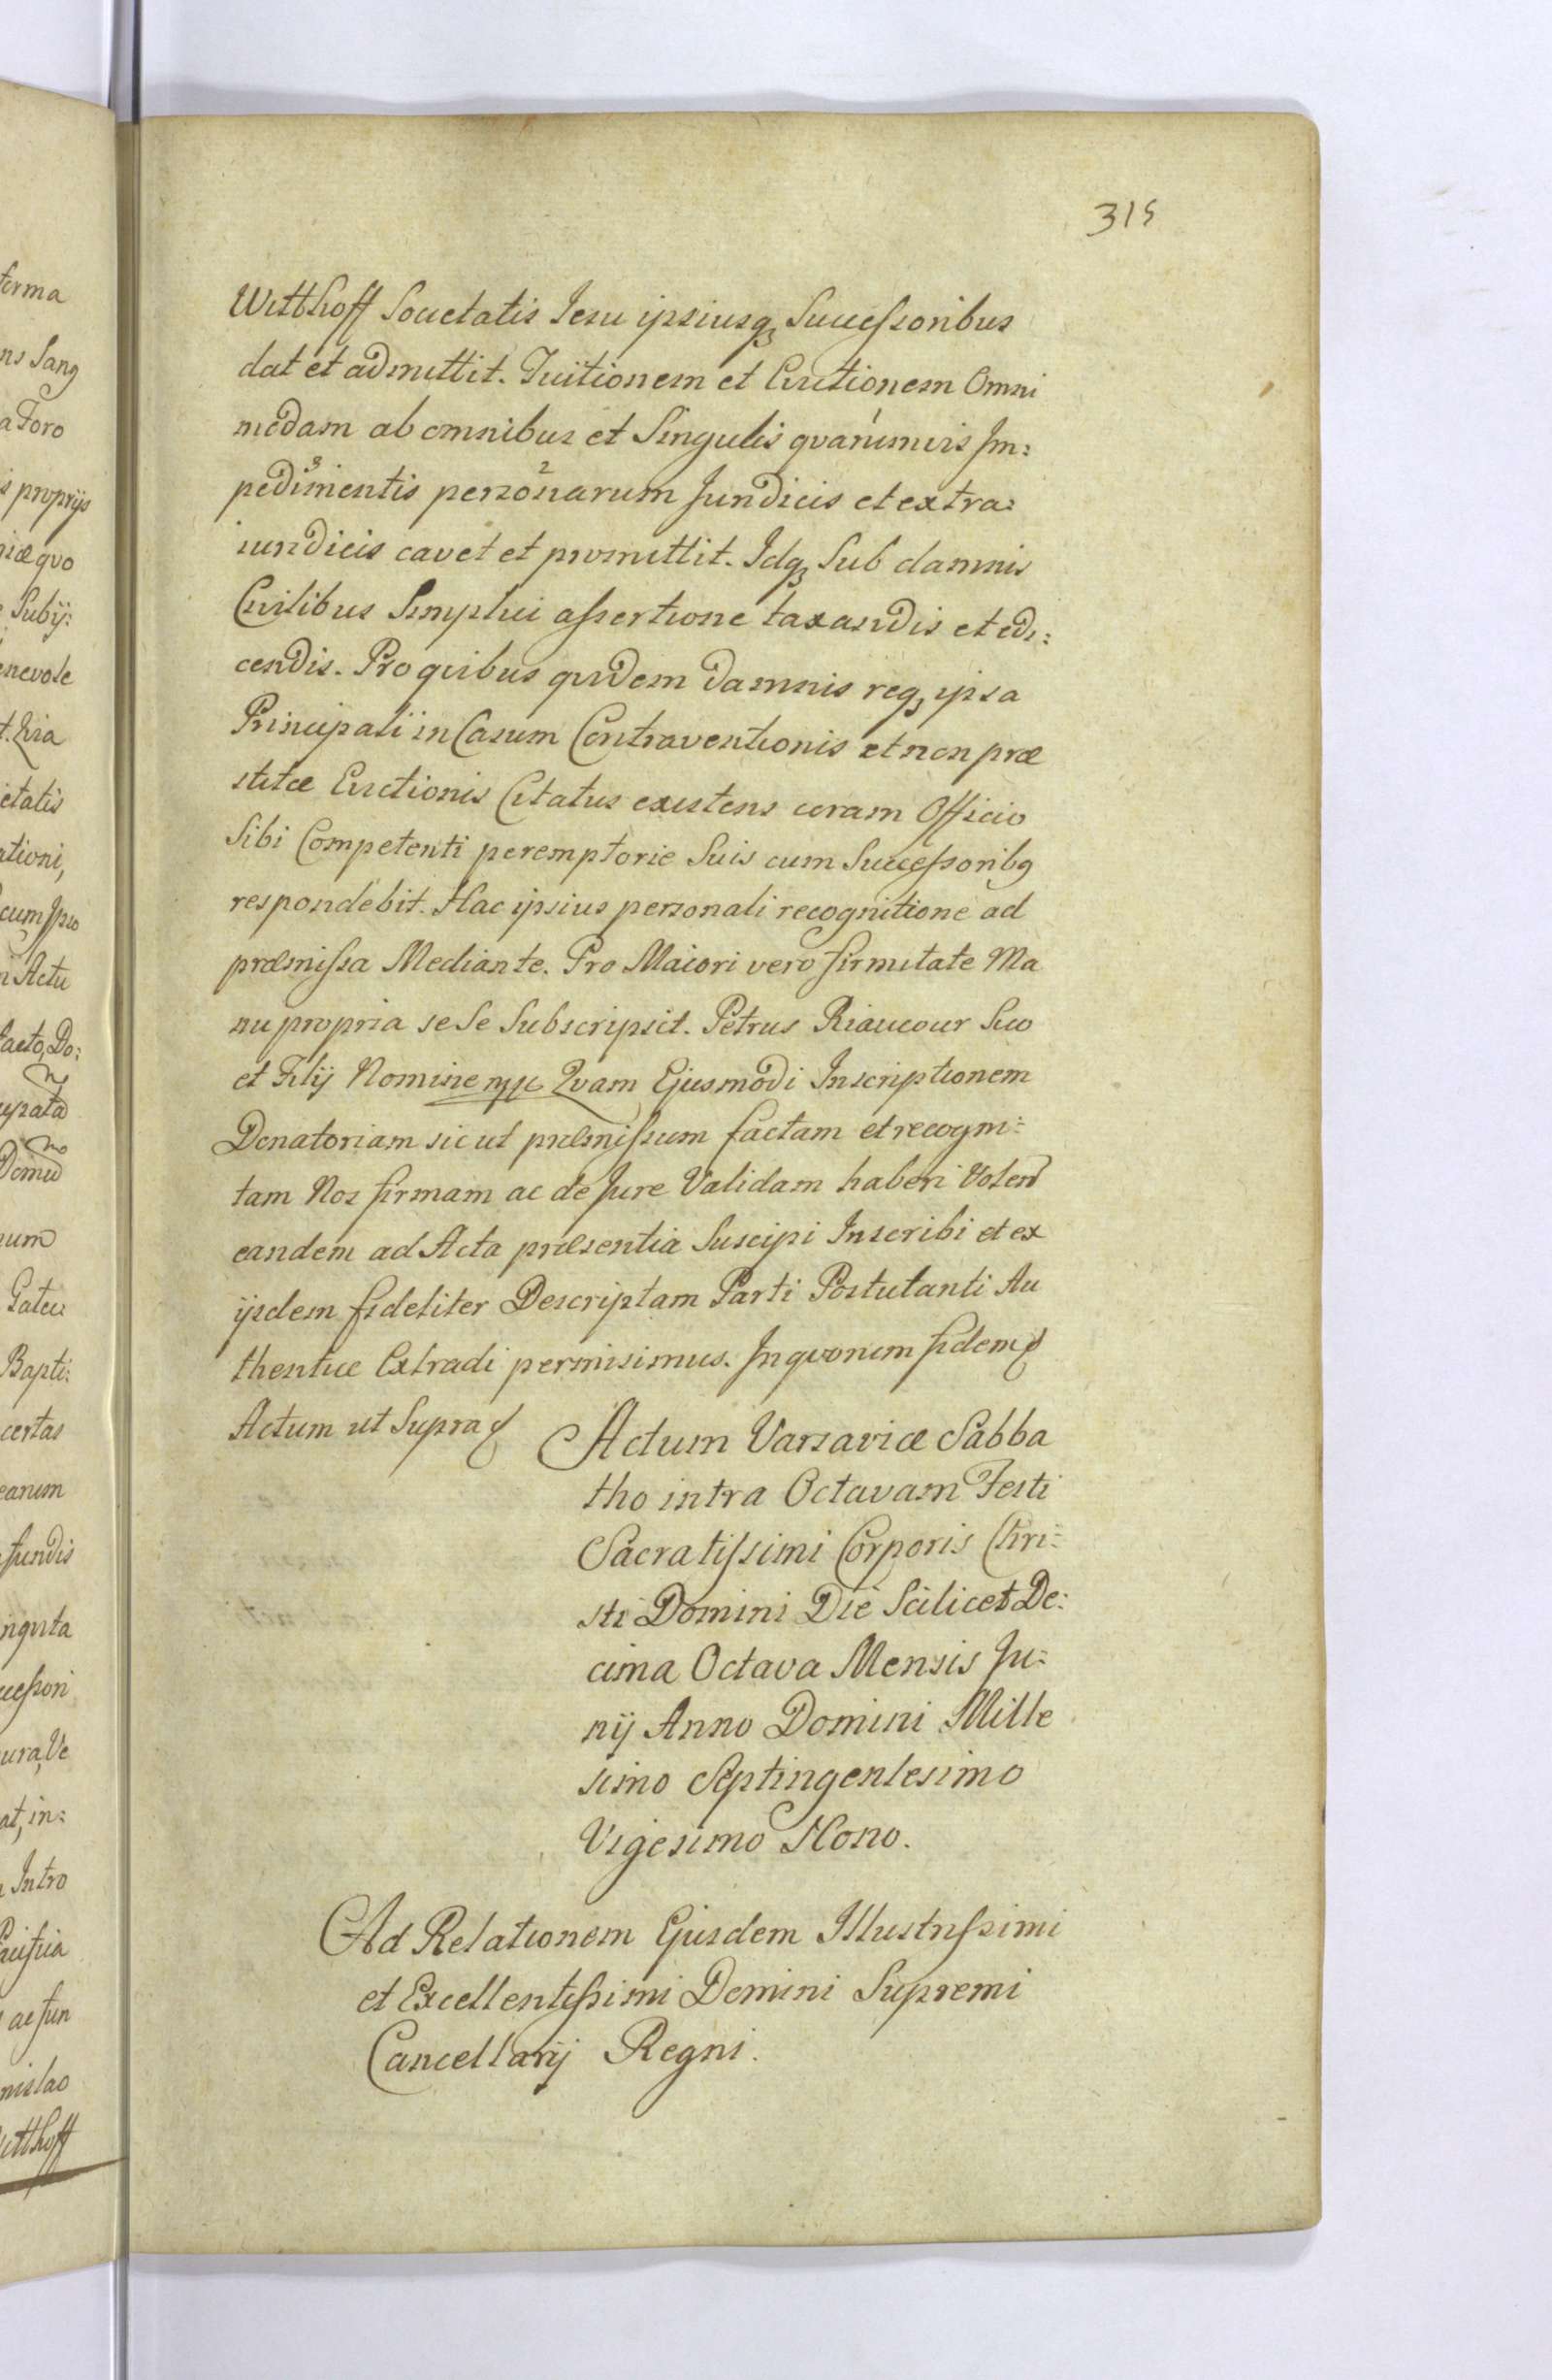 315
Witthoff Societatis Iesu ipsiusq₃ Successoribus
dat et admittit. Tuitionem et Evictionem Omni
modam ab omnibus et Singulis quarumvis Im:
pedimentis personarum Juridicis et extra:
iuridicis cavet et promittit. Idq₃ Sub damnis
Civilibus Simplici assertione taxandis et edi:
cendis. Pro quibus quidem damnis req₃ ipsa
Principali in Casum Contraventionis et non præ
stitæ Evictionis Citatus existens coram Officio
Sibi Competenti peremptorie Suis cum Successorib9
respondebit. Hac ipsius personali recognitione ad
præmissa Mediante. Pro Maiori vero firmitate Ma
nu propria se Se Subscripsit. Petrus Riaucour Suo
et Filij Nomine mpp Quam Ejusmodi Inscriptionem
Donatoriam sicut præmissum factam et recogni:
tam Nos firmam ac de Jure Validam haberi Volen
eandem ad Acta præsentia Suscipi Inscribi et ex
ijsdem fideliter Descriptam Parti Postulanti Au
thentice Extradi permisimus. In quorum fidem
Actum ut Supra
Actum Varsaviæ Sabba
tho intra Octavam Festi
Sacratissimi Corporis Chri:
sti Domini Die Scilicet De:
cima Octava Mensis Ju:
nij Anno Domini Mille
simo Septingentesimo
Vigesimo Nono.
Ad Relationem Ejusdem Illustrissimi
et Excellentissimi Domini Supremi
Cancellarij Regni.